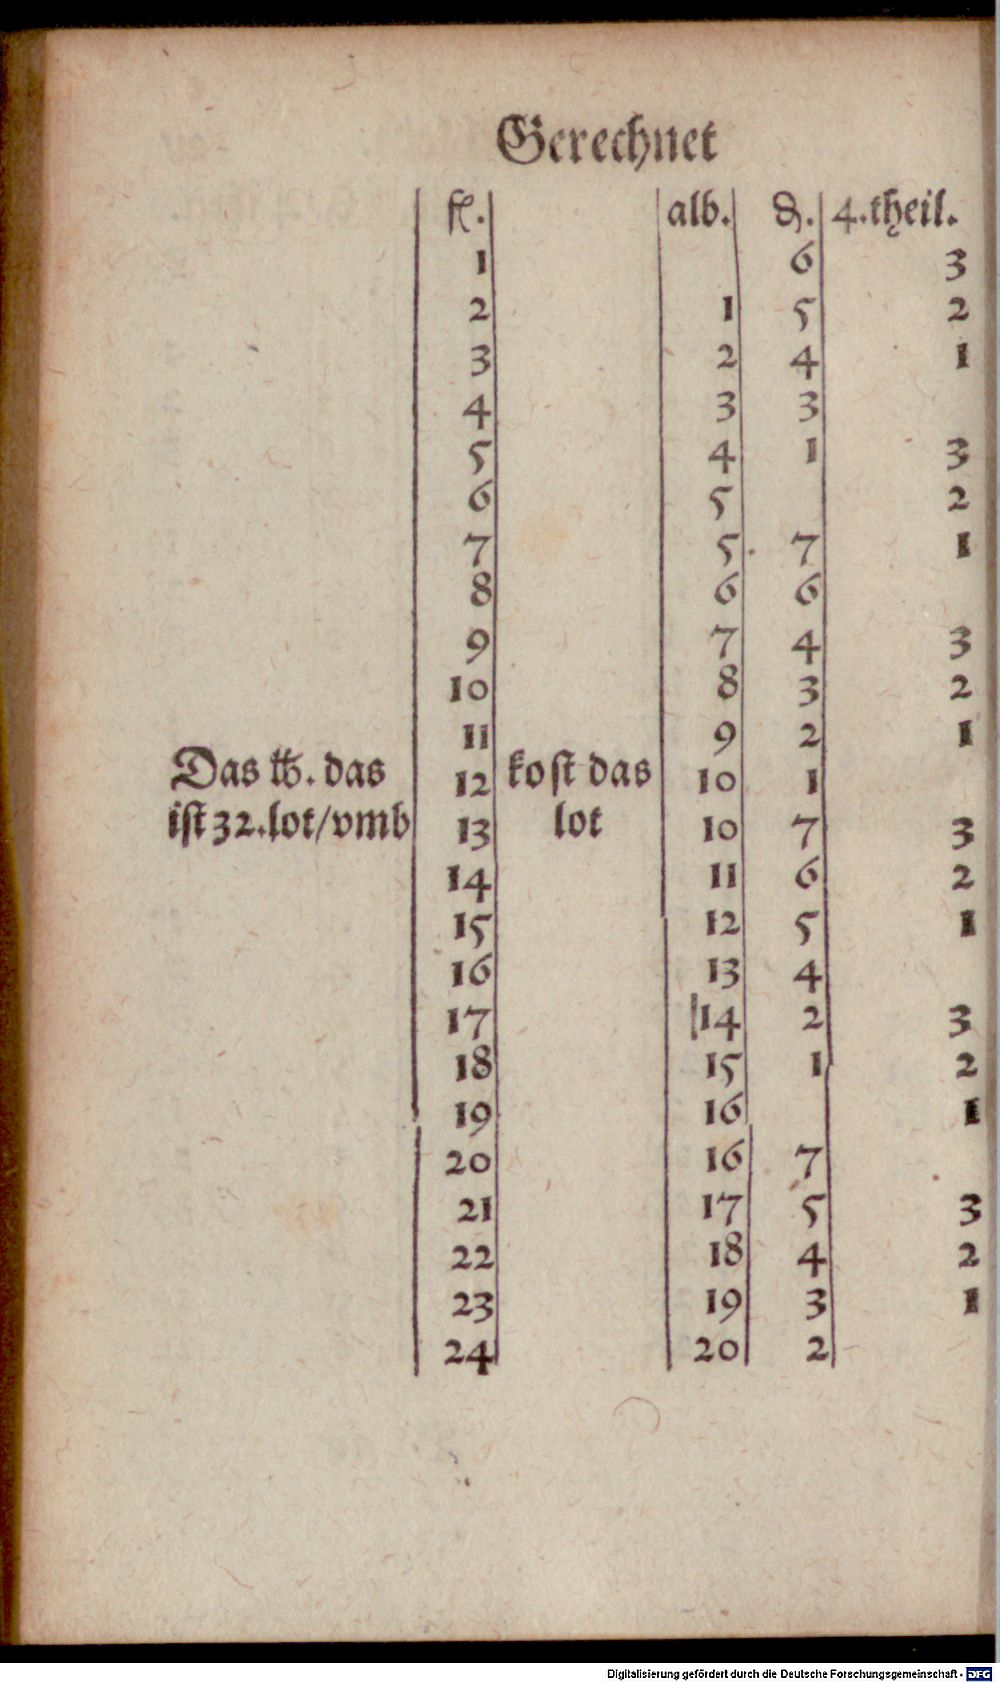 Gerechnet
fl. alb. ₰. 4.theil.
1 6 3
2 1 5 2
3 2 4 1
4 3 3
5 4 1 3
6 5 2
7 5 7 1
8 6 6
9 7 4 3
10 8 3 2
11 9 2 1
Das ℔. das 12 kost das 10 1
ist 32.lot/vmb 13 lot 10 7 3
14 11 6 2
15 12 5 1
16 13 4
17 14 2 3
18 15 1 2
19 16 1
20 16 7
21 17 5 3
22 18 4 2
23 19 3 1
24 20 2
Digitalisierung gefördert durch die Deutsche Forschungsgemeinschaft - DFG